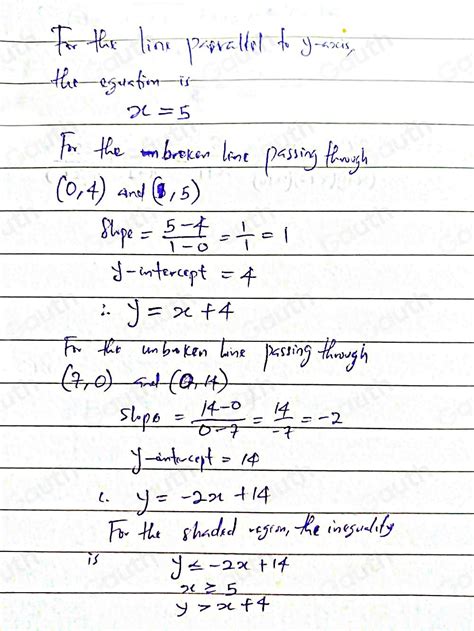 For the line parallel to y-axis,
the equation is
x = 5
For the broken line passing through
(0,4) and (1,5)
Slope = 5-4/1-0 = 1/1 = 1
y-intercept = 4
∴ y = x + 4
For the unbroken line passing through
(7,0) and (0,14)
Slope = 14-0/0-7 = 14/-7 = -2
y-intercept = 14
∴ y = -2x + 14
For the shaded region, the inequality
is y ≤ -2x + 14
x ≥ 5
y > x + 4
Gauth